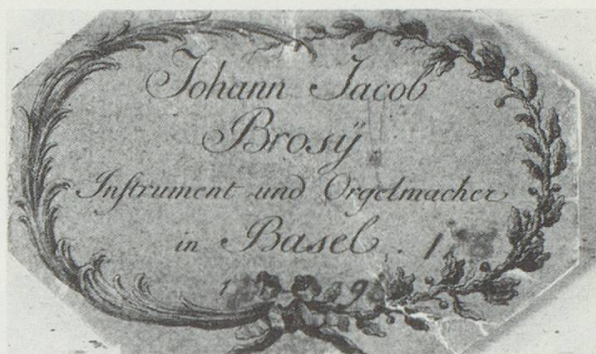 Johann Jacob
Brosÿ
Instrument und Orgelmacher
in Basel.